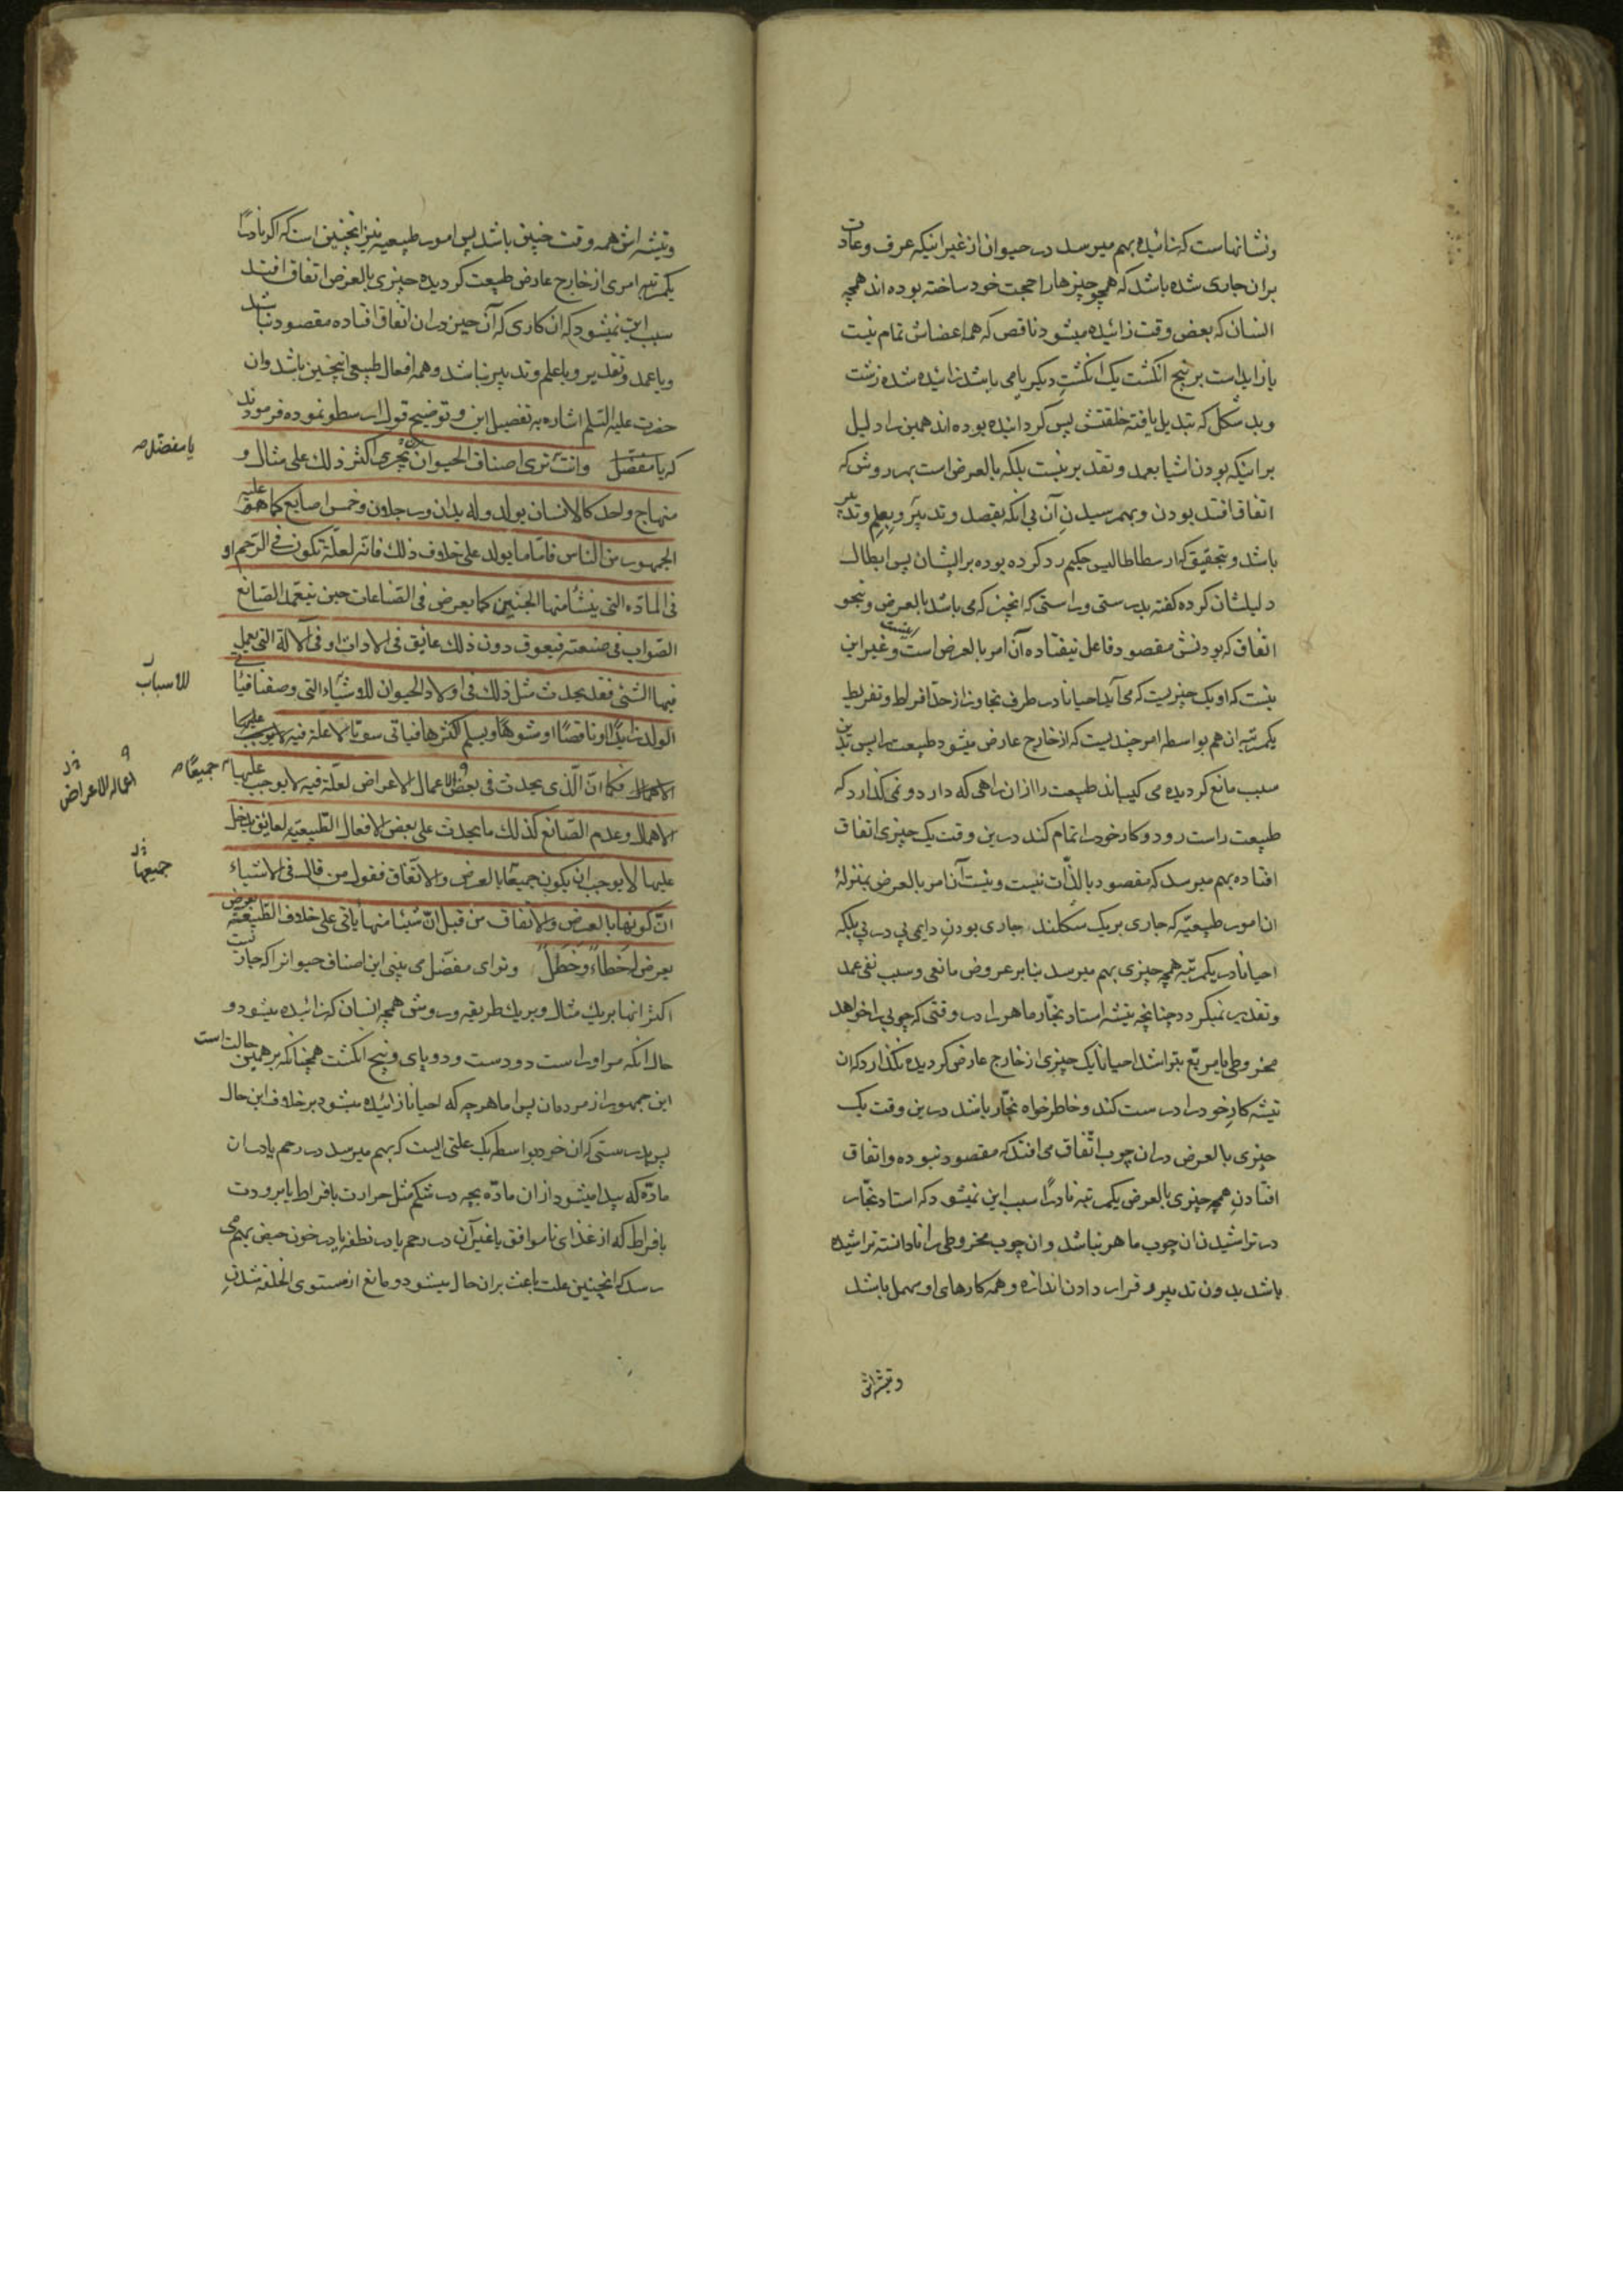 ونشانهاست که زائیده بهم میرسد در حیوان از غیر اینکه عرف و عادت
بران جاری شده باشد که همچو چیزها را حجت خود ساخته بوده اند همچه
انسان که بعض وقت زائیده میشود ناقص که همه اعضاش تمام نیست
یا زاید است بر پنج انکشت یک انکشت دیکر یا می باشد زائیده شده زشت
و بد شکل که تبدیل یافته خلقتش پس کردانیده بوده اند همین را دلیل
بر اینکه بودن اشیا بعمد و تقدیر نیست بلکه بالعرض است بهر روش که
اتفاق افتد بودن و بهم رسیدن آن بی انکه بقصد و تدبیر و بعلم و تدبیر
باشد و بتحقیق که ارسطاطالیس حکیم رد کرده بوده بر ایشان پس ابطال
دلیلشان کرده کفته بدرستی و راستی که انچیز که می باشد بالعرض و بنحو
اتفاق که بودنش مقصود فاعل نیفتاده آن امر بالعرض است و غیر این
نیست که او یک چیزیست که می آید احیانا در طرف تجاوز از حد افراط و تفریط
یکمرتبه ان هم بواسطه امر چندیست که از خارج عارض میشود طبیعت را پس بدین
سبب مانع کردیده می کیباند طبیعت را از ان راهی که دارد و نمی کذارد که
طبیعت راست رود و کار خود را تمام کند درین وقت یک چیزی اتفاق
افتاده بهم میرسد که مقصود بالذات نیست و نیست آن امر بالعرض بمنزلهٔ
ان امور طبیعیّه که جاری بر یک شکلند جاری بودن دایمی پی در پی بلکه
احیانا در یکمرتبه همچه چیزی بهم میرسد بنابر عروض مانعی و سبب نفی عمد
و تقدیر نمیکردد چنانچه تیشه استاد نجّار ماهر را در وقتی که چوبی را خواهد
مخروطی یا مربّع بتراشد احیانا یک چیزی از خارج عارض کردیده نکذارد که ان
تیشه کار خود را درست کند و خاطر خواه نجّار باشد درین وقت یک
چیزی بالعرض در ان چوب اتّفاق می افتد که مقصود نبوده و اتفاق
افتادن همچه چیزی بالعرض یکمرتبه نادرًا سبب این نمیشود که استاد نجّار
در تراشیدن ان چوب ماهر نباشد و ان چوب مخروطی را نادانسته تراشیده
باشد بدون تدبیر و قرار دادن اندازه و همه کارهای او مهمل باشد
و تیشه اش
و تیشه اش همه وقت چنین باشد پس امور طبیعیه نیز انچنین است که اکر نادرًا
یکمرتبه امری از خارج عارض طبیعت کردیده چیزی بالعرض اتفاق افتد
سبب این نمیشود که ان کاری که آن حین در ان اتفاق افتاده مقصود نباشد
و با عمد و تقدیر و با علم و تدبیر نباشد و همه افعال طبیعی انچنین باشد وان
حضرت علیه السّلم اشاره به تفصیل این و توضیح قول ارسطو نموده فرمودند
که یا مفضّل وانت تری اصناف الحیوان تجری اکثر ذلك علی مثال و
منهاج واحد کالانسان یولد وله یدان ورجلان وخمس اصابع کما علیه
الجمهور من الناس فامّا ما یولد علی خلاف ذلك فانّه لعلّة تکون فی الرّحم او
فی المادّه التی ینشأ منها الجنین کما یعرض فی الصّناعات حین یتعمّد الصّانع
الصّواب فی صنعته فیعوق دون ذلك عایق فی الادات او فی الآلة التی یعمل
فیها الشئ فقد یحدث مثل ذلك فی اولاد الحیوان للاشیاء التی وصفنا فیأتی
الولد زایدًا او ناقصًا او مشوهًا ویسلم اکثرها فیاتی سویًا لا علّة فیه
فکما انّ الّذی یحدث فی بعض الاعمال الاعراض لعلّة فیه لا یوجب علیها
الاهمال وعدم الصّانع کذلك ما یحدث علی بعض الافعال الطّبیعیّه لعایق یدخل
علیها لا یوجب ان یکون جمیعًا بالعرض والاتّفاق فقول من قال فی الاشیاء
انّ کونها بالعرض والاتفاق من قبل انّ شیئًا منها یاتی علی خلاف الطّبیعة بعرض
یعرض له خطاءٌ وخطلٌ وتو ای مفضّل می بینی این اصناف حیوانرا که جاریست
اکثر انها بریك مثال و بریك طریقه وروش همچه انسان که زائیده میشود و
حال انکه مر او راست دو دست و دو پای و پنج انکشت همچنانکه بر همین حالت است
این جمهور از مردمان پس اما هرچه که احیانا زائیده میشود بر خلاف این حال
پس بدرستی که ان خود بواسطه یک علتی ایست که بهم میرسد در رحم یا در ان
مادّه که پیدا میشود از ان مادّه بچه در شکم مثل حرارت بافراط یا برودت
بافراط که از غذای ناموافق یا غیر آن در رحم یا در نطفه یا در خون حیض بهم می
رسد که انچنین علت باعث بران حال میشود و مانع از مستوی الخلقه شدن
یا مفضّل
للاسباب
علیها جمیعًا
اعماله للاعراض
جمیعها